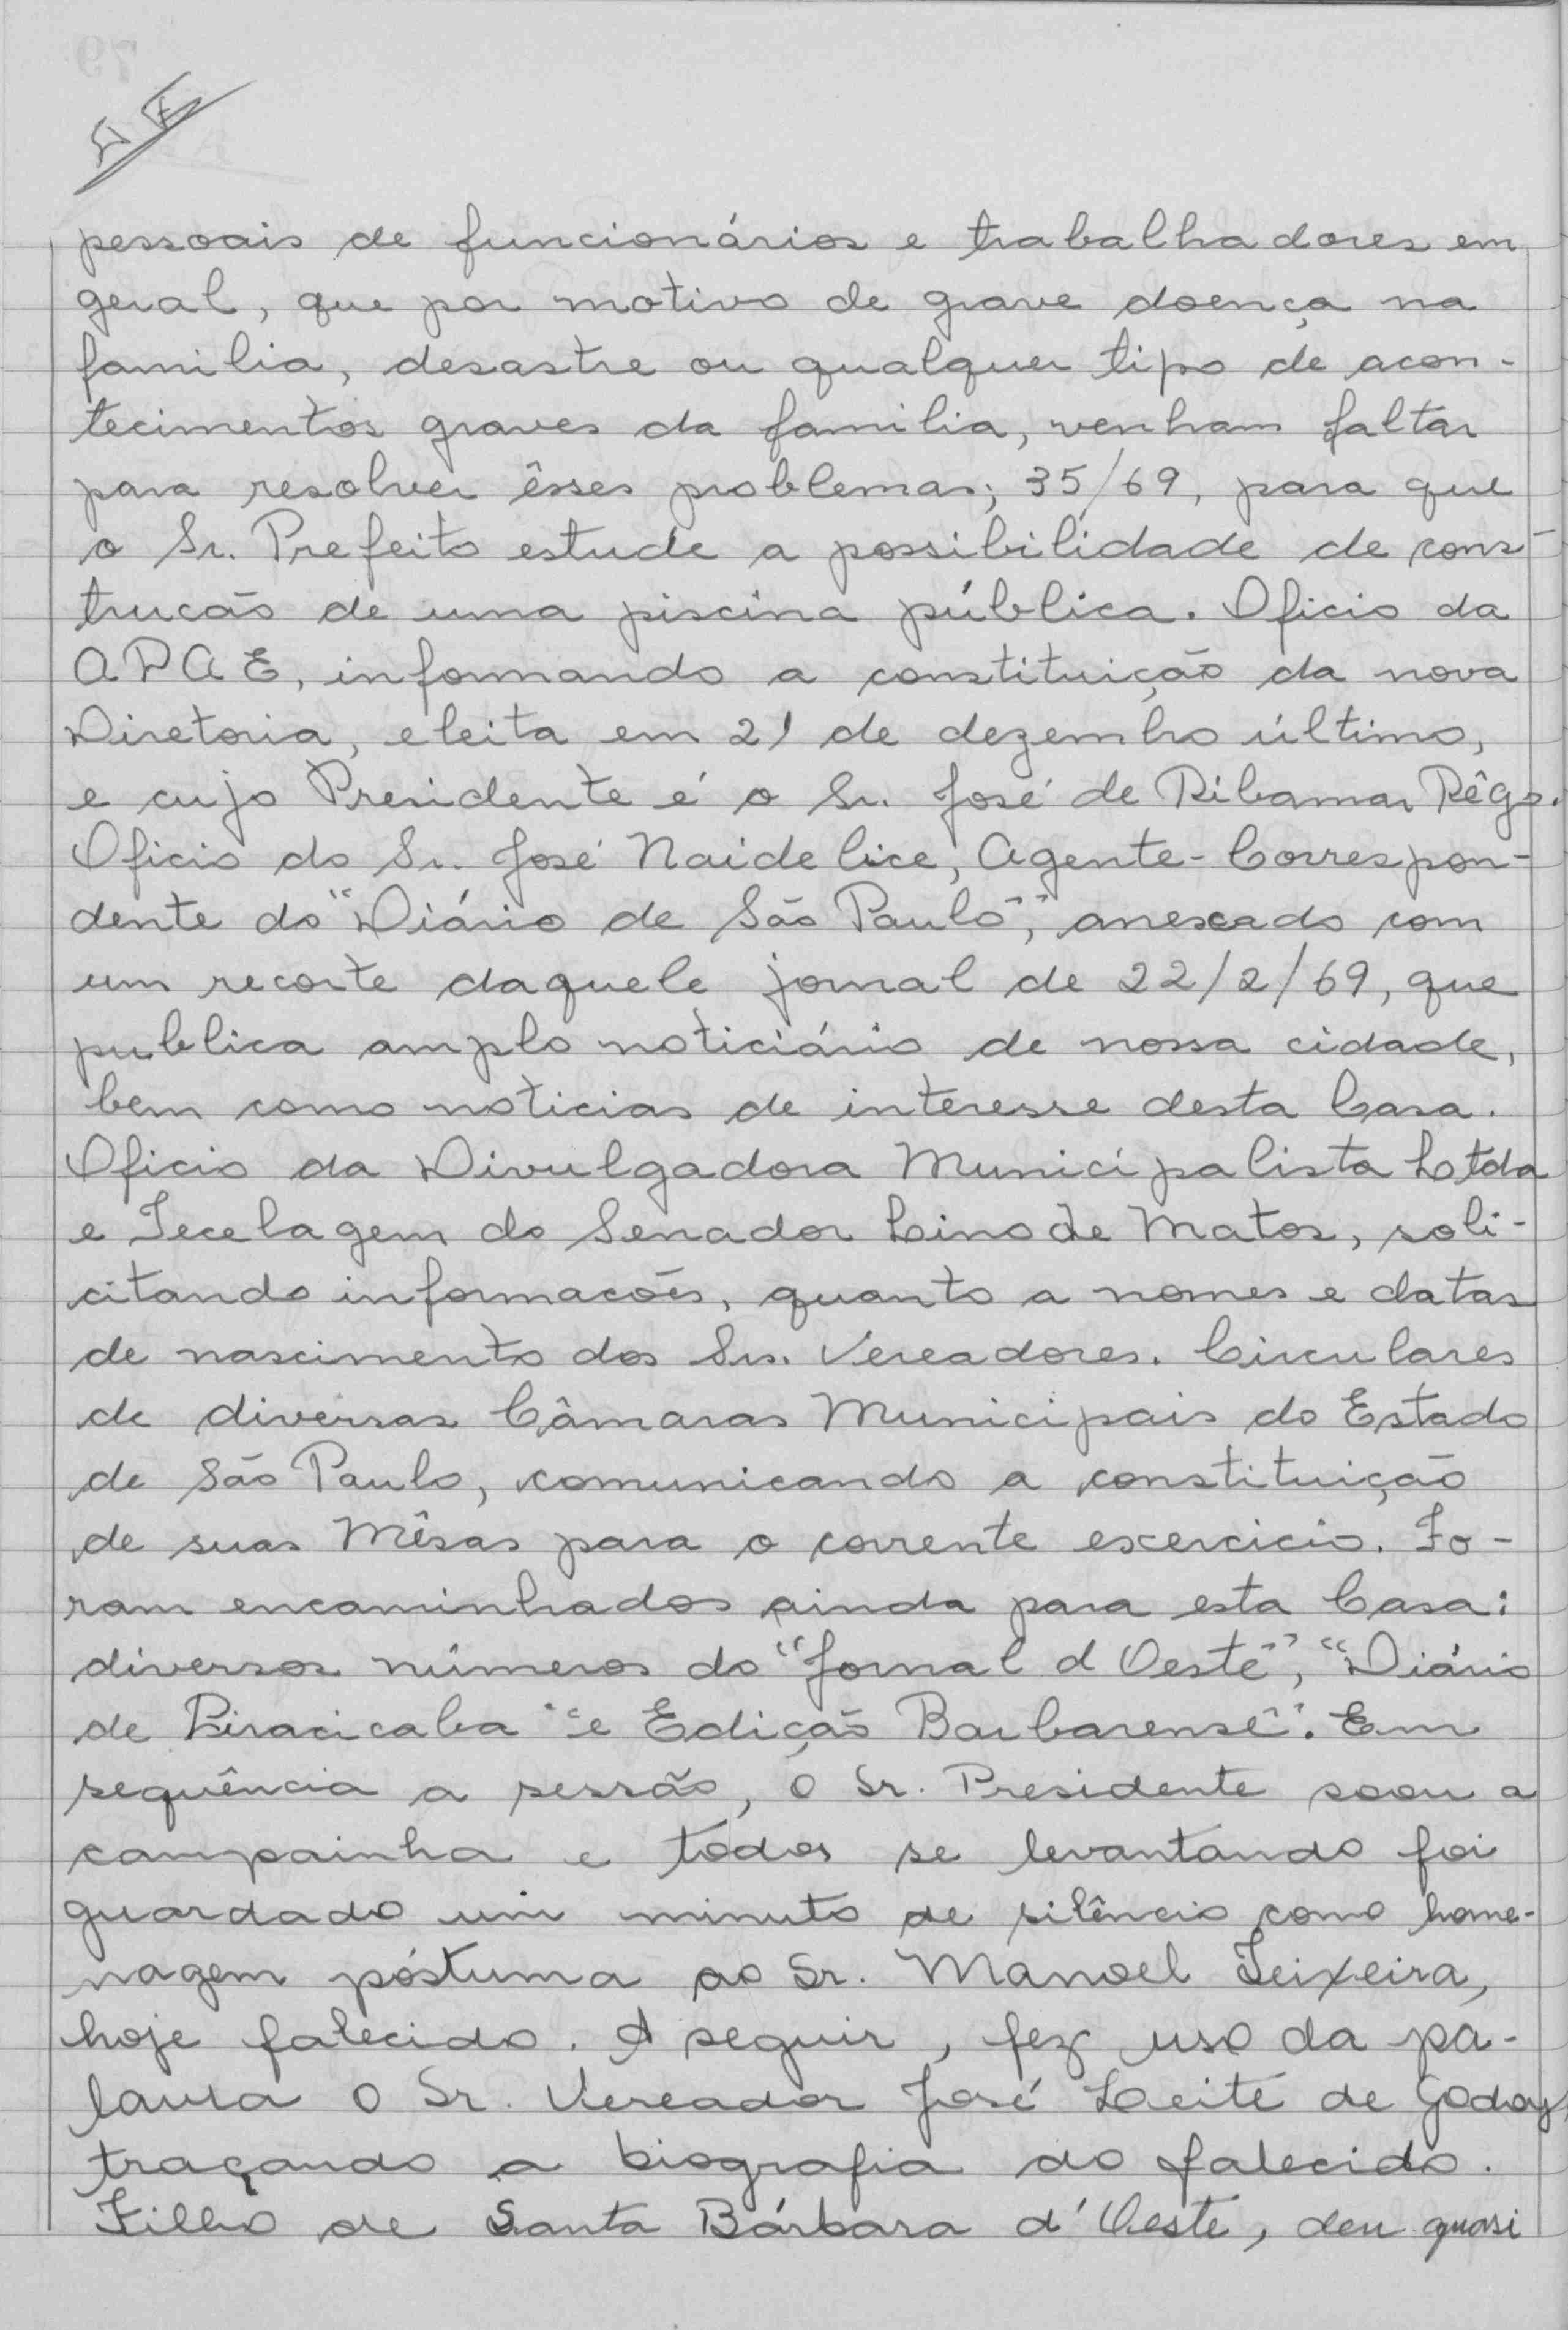 pessoais de funcionários e trabalhadores em
geral, que por motivo de grave doença na
familia, desastre ou qualquer tipo de acon-
tecimentos graves da familia, venham faltar
para resolver êsses problemas; 35/69, para que
o Sr. Prefeito estude a possibilidade de cons-
trucão de uma piscina pública. Oficio da
APAE, informando a constituição da nova
Diretoria, eleita em 21 de dezembro último,
e cujo Presidente é o Sr. José de Ribamar Rêgo.
Oficio do Sr. José Naidelice, Agente-Correspon-
dente do "Diário de São Paulo", anexado com
um recorte daquele jornal de 22/2/69, que
publica amplo noticiário de nossa cidade,
bem como noticias de interesse desta Casa.
Oficio da Divulgadora Municipalista Ltda
e Tecelagem do Senador Lino de Matos, soli-
citando informacões, quanto a nomes e datas
de nascimento dos Srs. Vereadores. Circulares
de diversas Câmaras Municipais do Estado
de São Paulo, comunicando a constituição
de suas Mêsas para o corrente exercicio. Fo-
ram encaminhados ainda para esta Casa:
diversos números do "Jornal d Oeste", "Diário
de Piracicaba" e Edição Barbarense". Em
sequência a sessão, o Sr. Presidente soou a
campainha e todos se levantando foi
guardado um minuto de silêncio como home-
nagem póstuma ao Sr. Manoel Teixeira,
hoje falecido. A seguir, fez uso da pa-
lavra o Sr. Vereador José Leite de Godoy
traçando a biografia do falecido.
Filho de Santa Bárbara d'Oeste, deu quasi